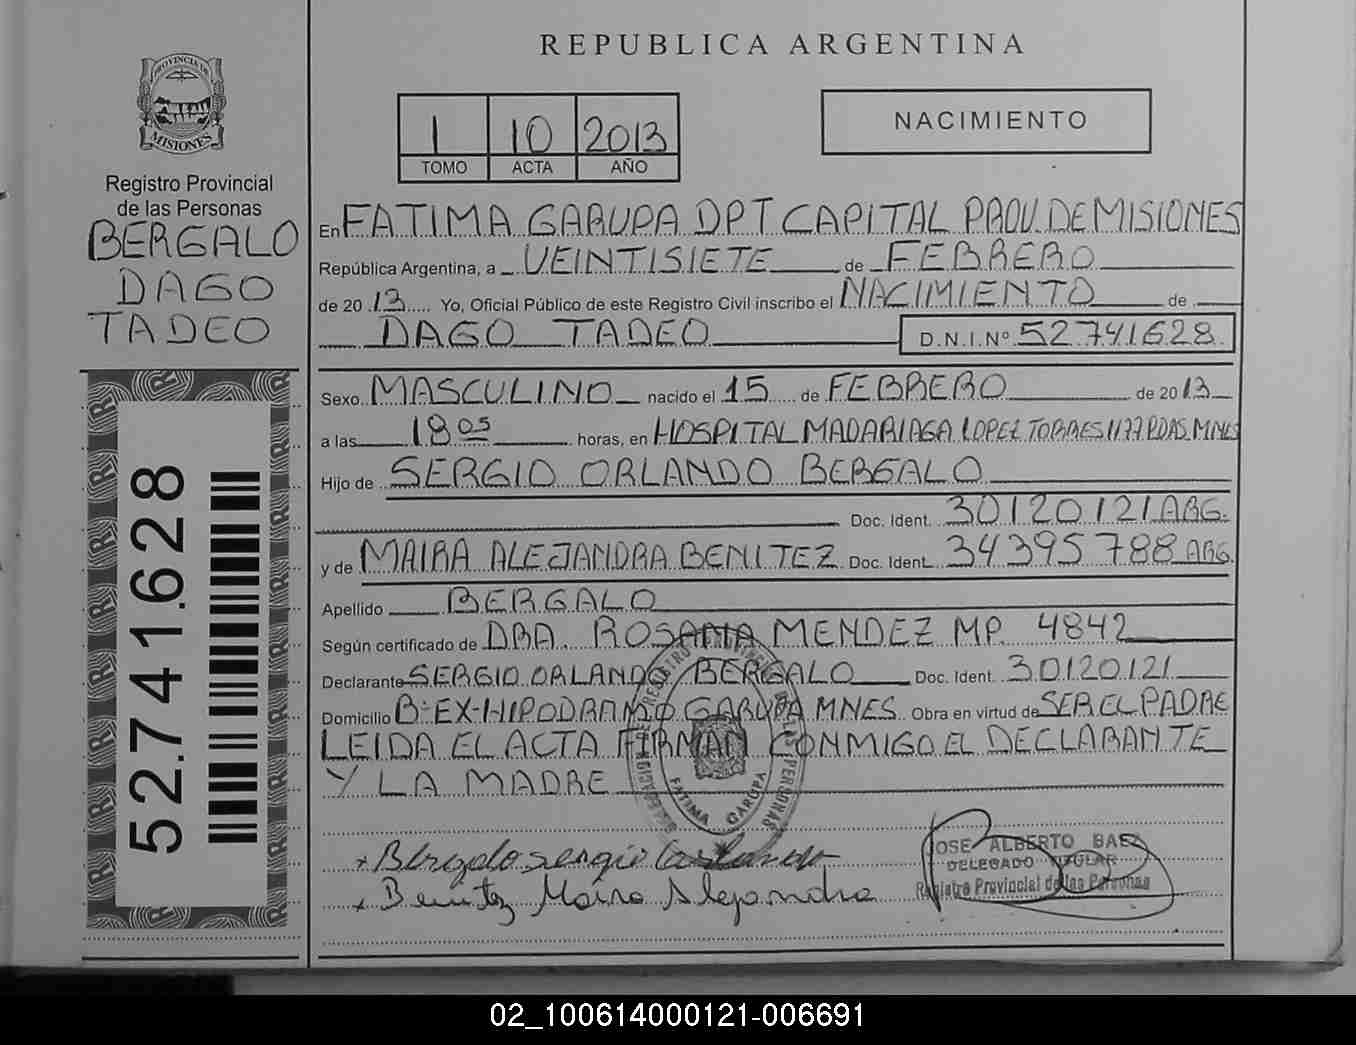 REPUBLICA ARGENTINA
PROVINCIA DE
MISIONES
Registro Provincial
de las Personas
BERGALO
DAGO
TADEO
52.741.628
1 10 2013
TOMO ACTA AÑO
NACIMIENTO
En FATIMA GARUPA DPT CAPITAL PROV. DE MISIONES
República Argentina, a VEINTISIETE de FEBRERO
de 20 13 Yo, Oficial Público de este Registro Civil inscribo el NACIMIENTO de
DAGO TADEO D.N.I.Nº 52.741.628
Sexo MASCULINO nacido el 15 de FEBRERO de 20 13
a las 18 05 horas, en HOSPITAL MADARIAGA LOPEZ TORRES 1177 PDAS. MNES
Hijo de SERGIO ORLANDO BERGALO
Doc. Ident. 30120121 ARG.
y de MAIRA ALEJANDRA BENITEZ Doc. Ident. 34395788 ARG.
Apellido BERGALO
Según certificado de DRA. ROSANA MENDEZ MP. 4842
Declarante SERGIO ORLANDO BERGALO Doc. Ident. 30120121
Domicilio Bº EX-HIPODRAMO GARUPA MNES. Obra en virtud de SER EL PADRE
LEIDA EL ACTA FIRMAN CONMIGO EL DECLARANTE
Y LA MADRE
REGISTRO PROVINCIAL DE LAS PERSONAS
FATIMA GARUPA
x Bergalo sergio orlando
x Benitez Maira Alejandra
JOSE ALBERTO BAEZ
DELEGADO TITULAR
Registro Provincial de las Personas
02_100614000121-006691